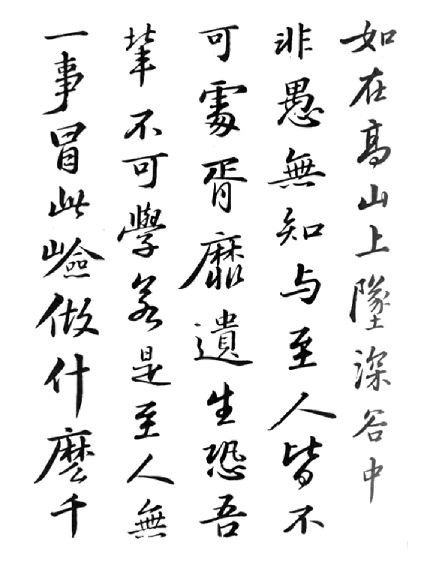 如在高山上墜深谷中
非愚無知与至人皆不
可處胥靡遺生恐吾
輩不可學若是至人無
一事冒此嶮做什麼千